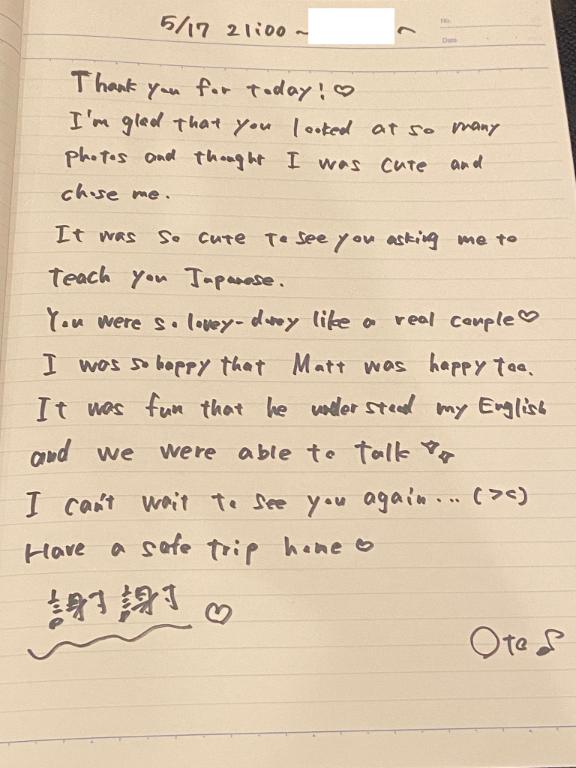 5/17 21:00 ~ ~
No.
Date
Thank you for today! ♡
I'm glad that you looked at so many
photos and thought I was cute and
chose me.
It was so cute to see you asking me to
teach you Japanese.
You were so lovey-dovey like a real couple♡
I was so happy that Matt was happy too.
It was fun that he understood my English
and we were able to talk ☆☆
I can't wait to see you again... (><)
Have a safe trip home ♡
謝謝 ♡
Oto♪